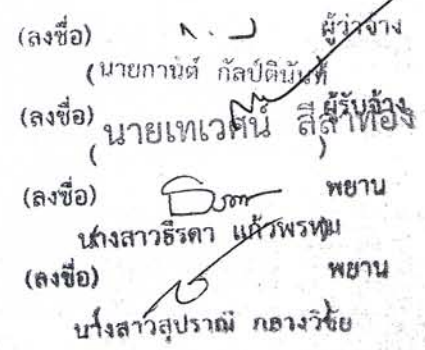 (ลงชื่อ) ผู้ว่าจ้าง
(นายกานต์ กัลป์ตินันท์)
(ลงชื่อ) ผู้รับจ้าง
(นายเทเวศน์ สีลาทอง)
(ลงชื่อ) พยาน
นางสาวธีรดา แก้วพรหม
(ลงชื่อ) พยาน
นางสาวสุปราณี กลางวิชัย